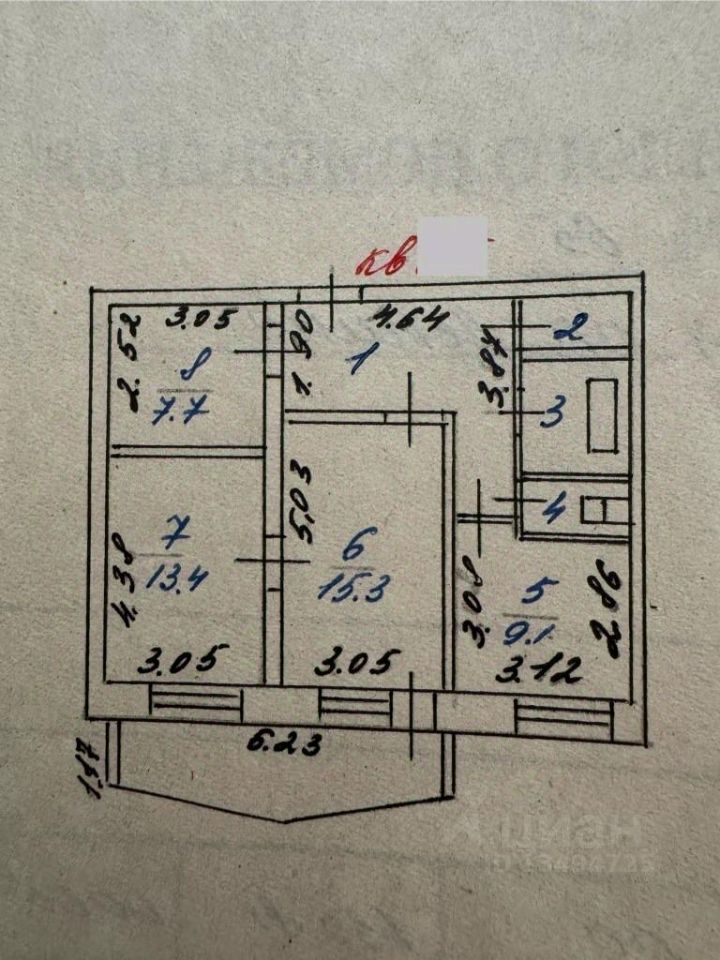 кв.
3.05
4.64
2.52
1.90
3.87
8
7.7
1
2
3
4
5.03
4.38
7
13.4
6
15.3
3.08
5
9.1
2.86
3.05
3.05
3.12
6.23
1.17
циан